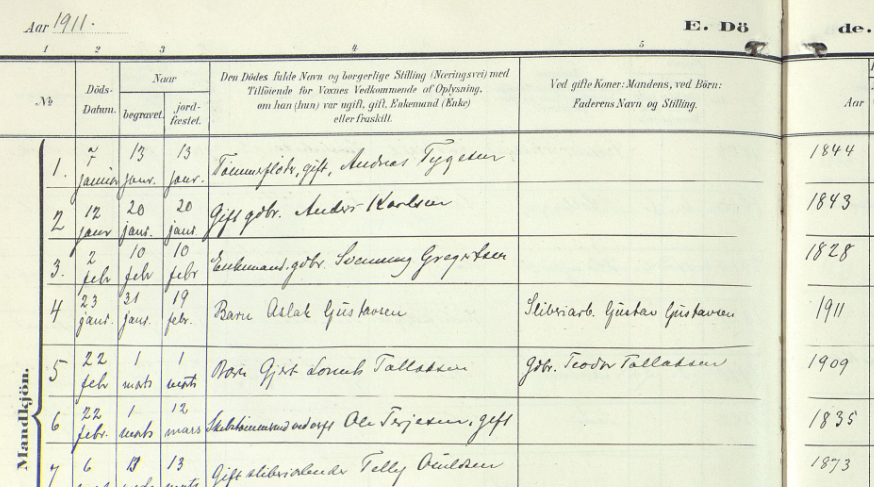 Aar 1911.
E. Dö de.
1 2 3 4 5
№ Döds-Datum. Naar begravet. jord-fæstet. Den Dödes fulde Navn og borgerlige Stilling (Næringsvei) med
Tilföiende for Voxnes Vedkommende af Oplysning,
om han (hun) var ugift, gift, Enkemand (Enke)
eller fraskilt.
Ved gifte Koner: Mandens, ved Börn:
Faderens Navn og Stilling.
Aar
Mandkjön.
1. 7 januar 13 janr. 13 janr. Tömmerfløder, gift, Andreas Tygesen 1844
2 12 janr 20 janr. 20 janr. Gift gdbr. Anders Karlsen 1843
3. 2 febr 10 febr 10 febr Enkemand, gdbr. Svenning Gregertsen 1828
4 23 janr. 31 janr. 19 febr. Barn Aslak Gustavsen Sliberiarb. Gustav Gustavsen 1911
5 22 febr 1 marts 1 marts Barn Gjert Tallaksen Gdbr. Teodor Tallaksen 1909
6 22 febr. 1 marts 12 mars Ole Terjesen, gift 1835
7 6 13 13 Gift sliberiarbeider 1873